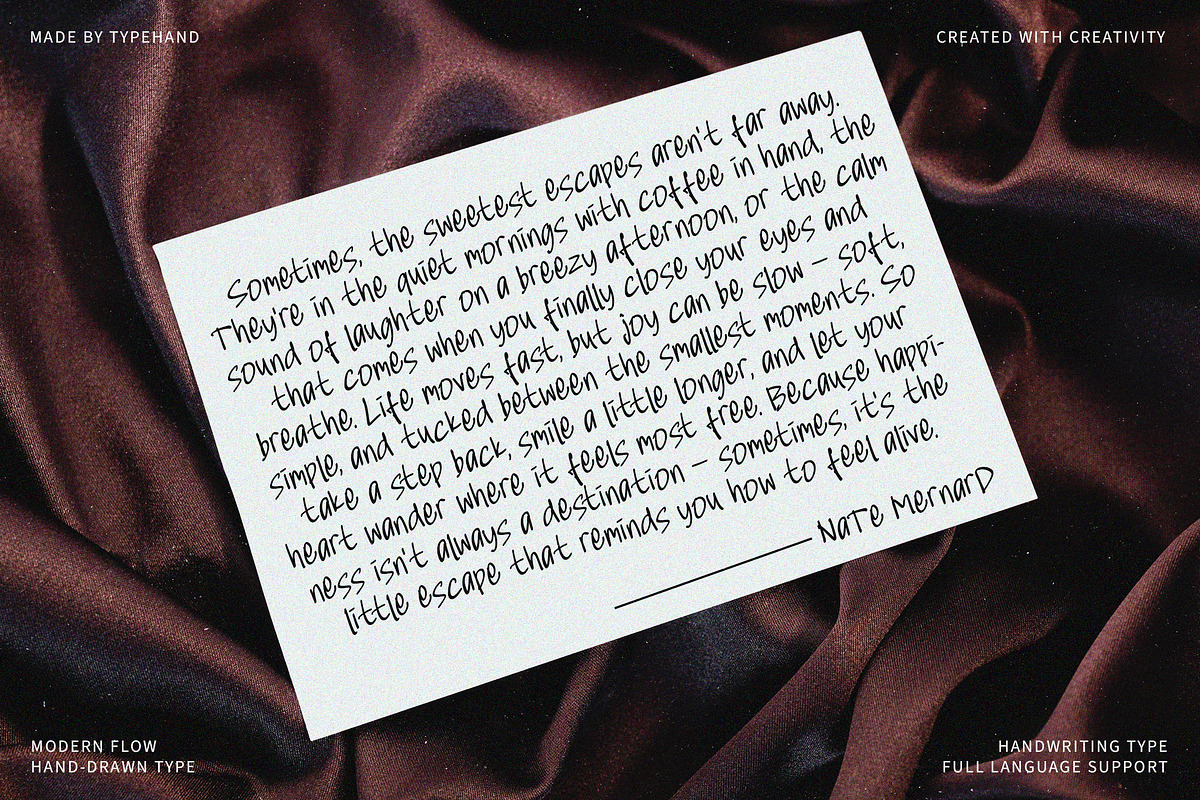 MADE BY TYPEHAND
CREATED WITH CREATIVITY
Sometimes, the sweetest escapes aren't far away.
They're in the quiet mornings with coffee in hand, the
sound of laughter on a breezy afternoon, or the calm
that comes when you finally close your eyes and
breathe. Life moves fast, but joy can be slow – soft,
simple, and tucked between the smallest moments. So
take a step back, smile a little longer, and let your
heart wander where it feels most free. Because happi-
ness isn't always a destination – sometimes, it's the
little escape that reminds you how to feel alive.
NaTe MernarD
MODERN FLOW
HAND-DRAWN TYPE
HANDWRITING TYPE
FULL LANGUAGE SUPPORT